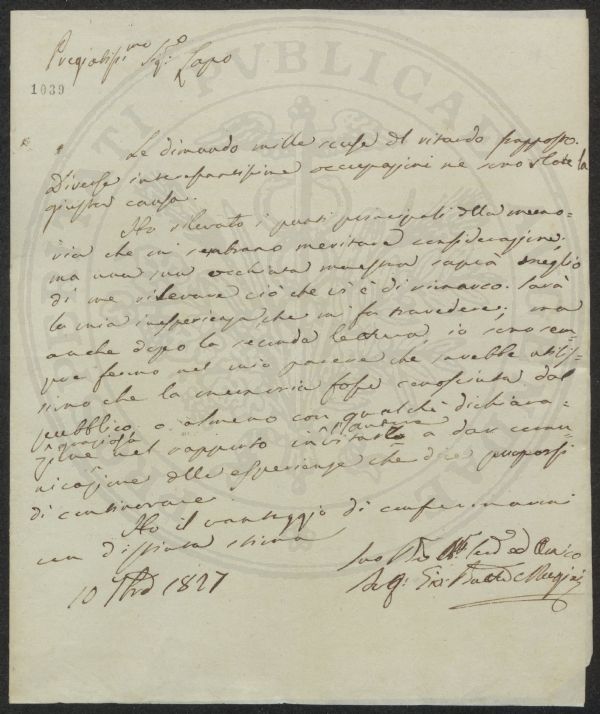 Pregiatissimo Sigr Lapo
1039
Le dimando mille scuse del ritardo frapposto.
Diverse interessantissime occupazioni ne sono state la
giusta causa.
Ho rilevato i punti principali della memo-
ria che mi sembrano meritare considerazione;
ma una sua occhiata saprà meglio
di me rilevare ciò che vi è di rimarco. Sarà
la mia inesperienza che mi fa travedere; ma
anche dopo la seconda lettura, io sono sem-
pre fermo nel mio parere che sarebbe utilis-
simo che la memoria fosse conosciuta dal
pubblico, o almeno con qualche dichiara-
graziosa l'autore
zione nel rapporto invitarlo a dar comu-
nicazione delle esperienze che dice proporsi
di continovare.
Ho il vantaggio di confermarmi
con distinta stima
10 1827
Suo ed Amico